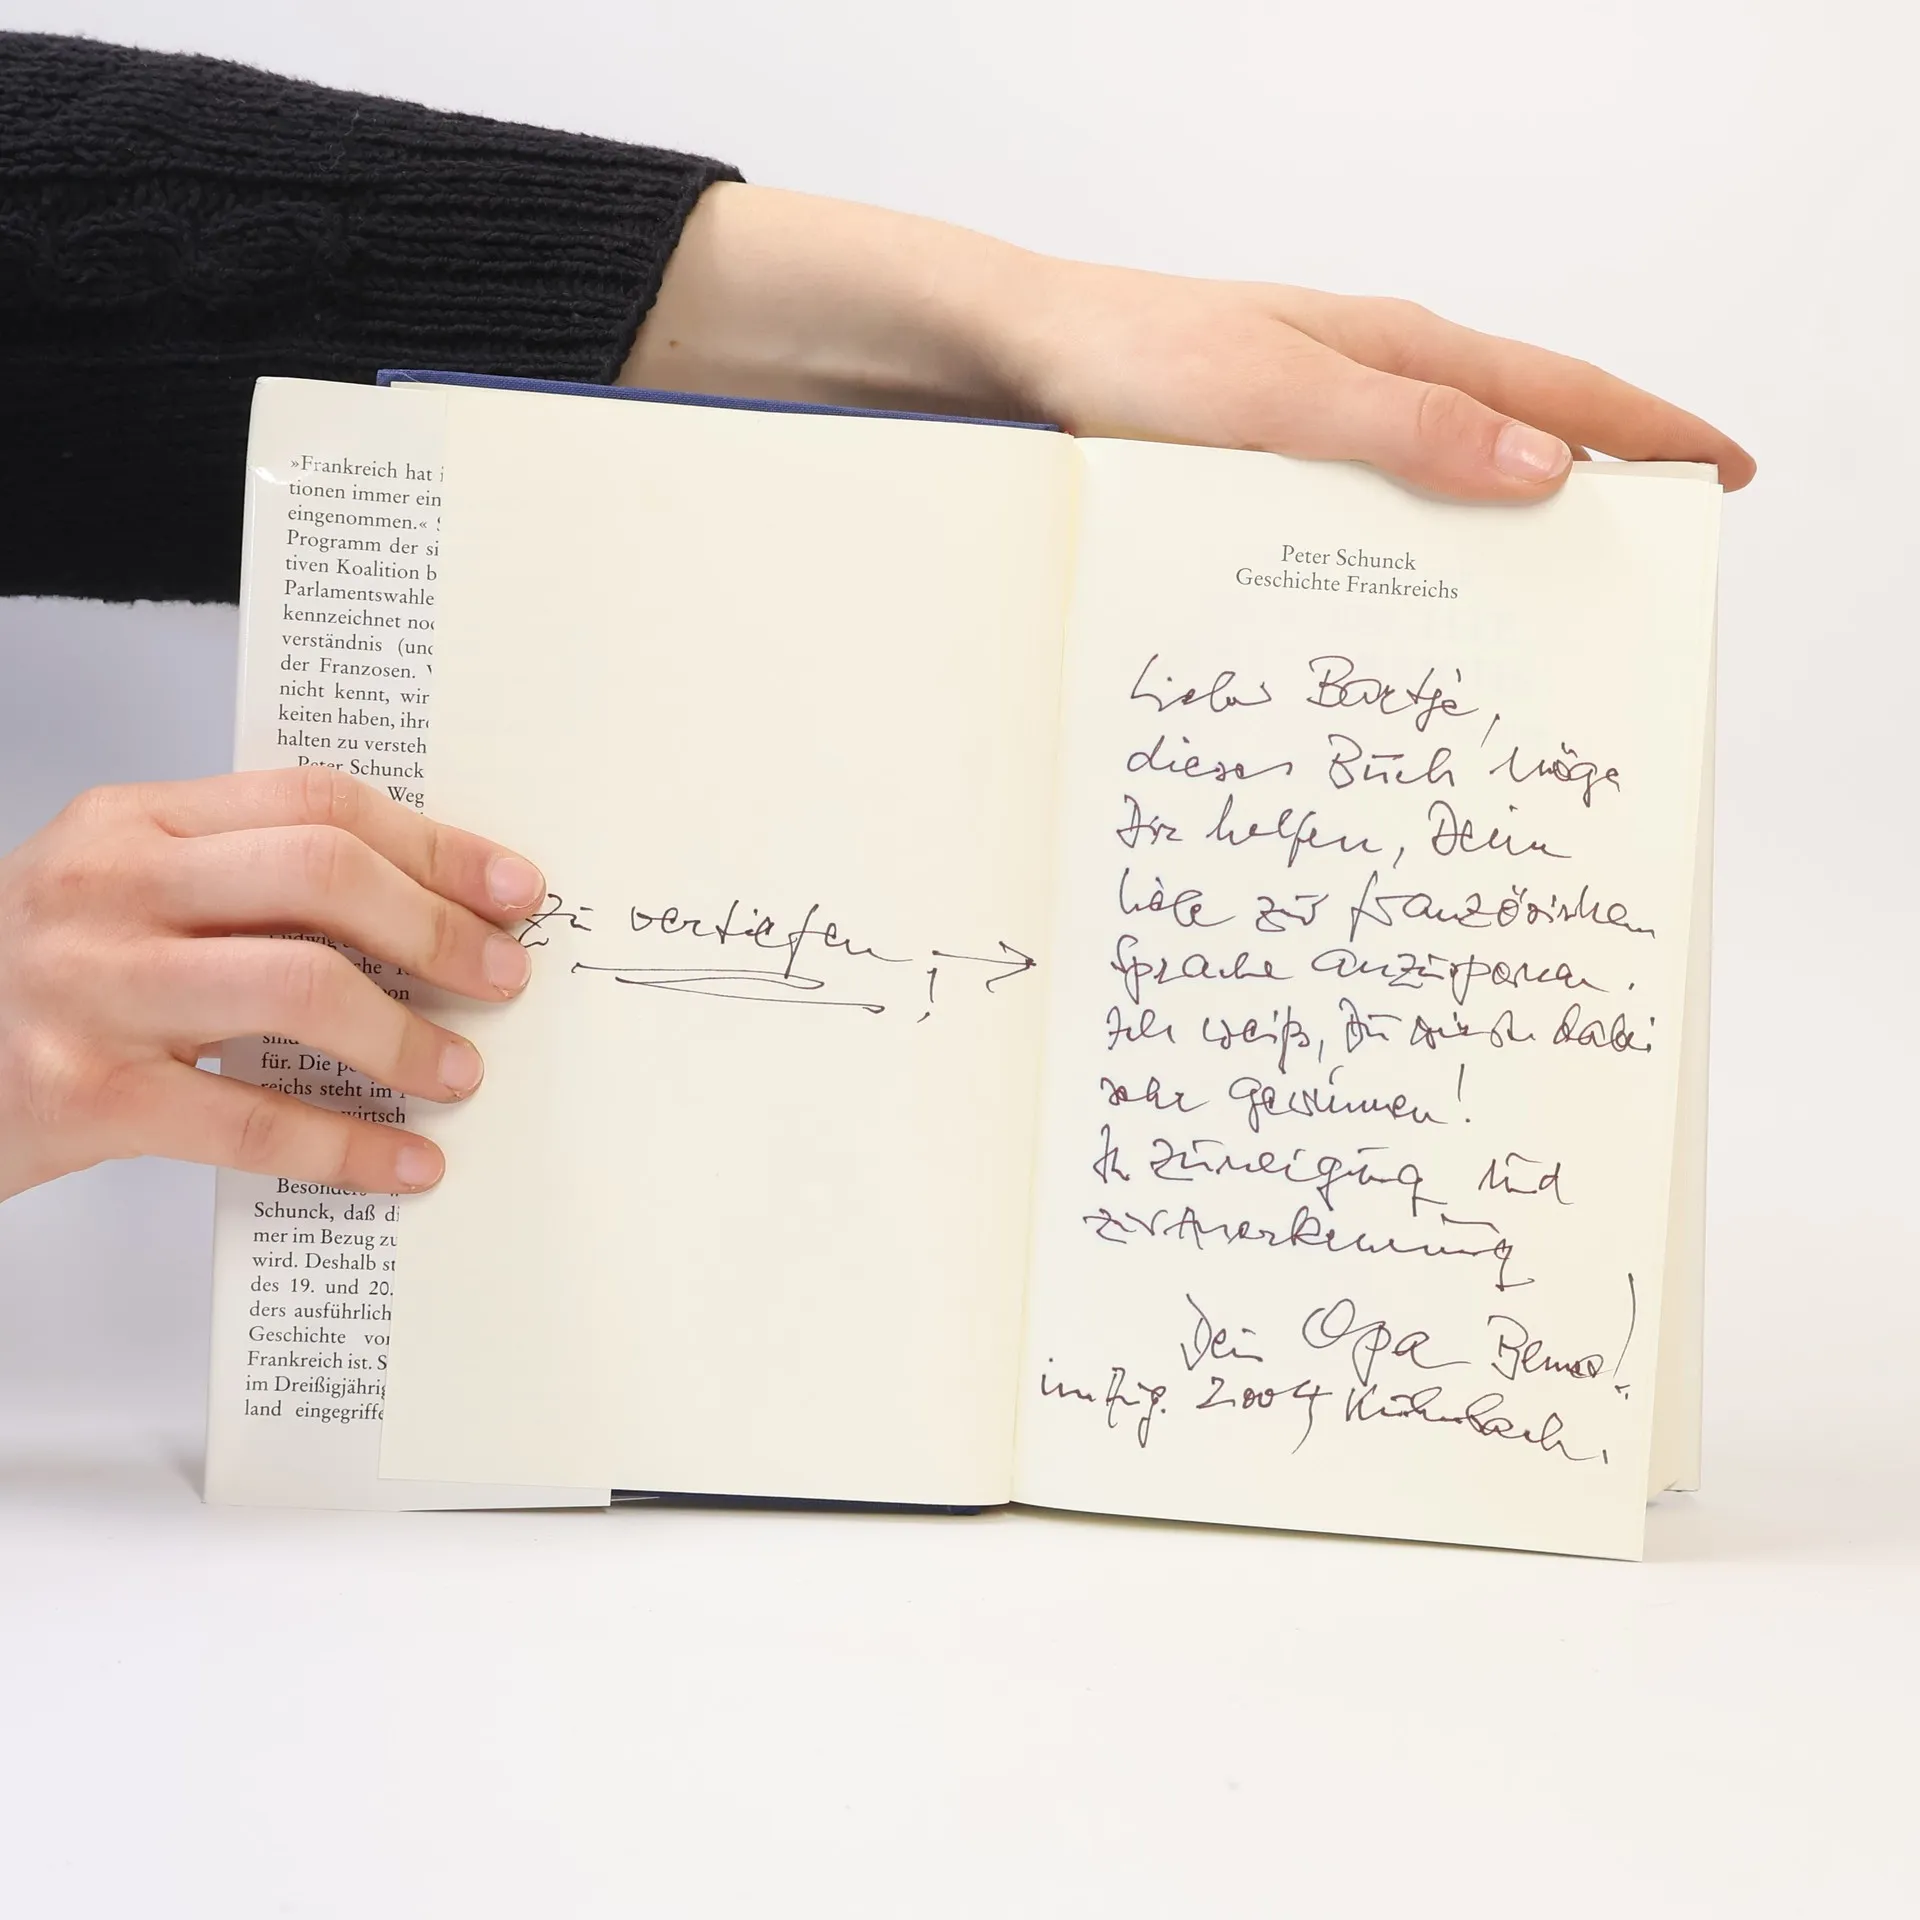 »Frankreich hat
tionen immer ein
eingenommen.«
Programm der si
tiven Koalition b
Parlamentswahle
kennzeichnet noc
verständnis (und
der Franzosen.
nicht kennt, wir
keiten haben, ihre
halten zu versteh
Peter Schunck
Weg
für. Die
reichs steht im
wirtsch
Besonders
Schunck, daß di
mer im Bezug zu
wird. Deshalb st
des 19. und 20.
ders ausführlich
Geschichte vor
Frankreich ist. S
im Dreißigjährig
land eingegriffe
zu vertiefen, →
!
Peter Schunck
Geschichte Frankreichs
Bartjé,
dieses Buch möge
Dir helfen, Deine
zur französischen
Sprache anzuspornen.
Ich weiß, Du wirst dabei
sehr gewinnen!
In Zuneigung und
zur Anerkennung
Dein Opa !
im Aug. 2004